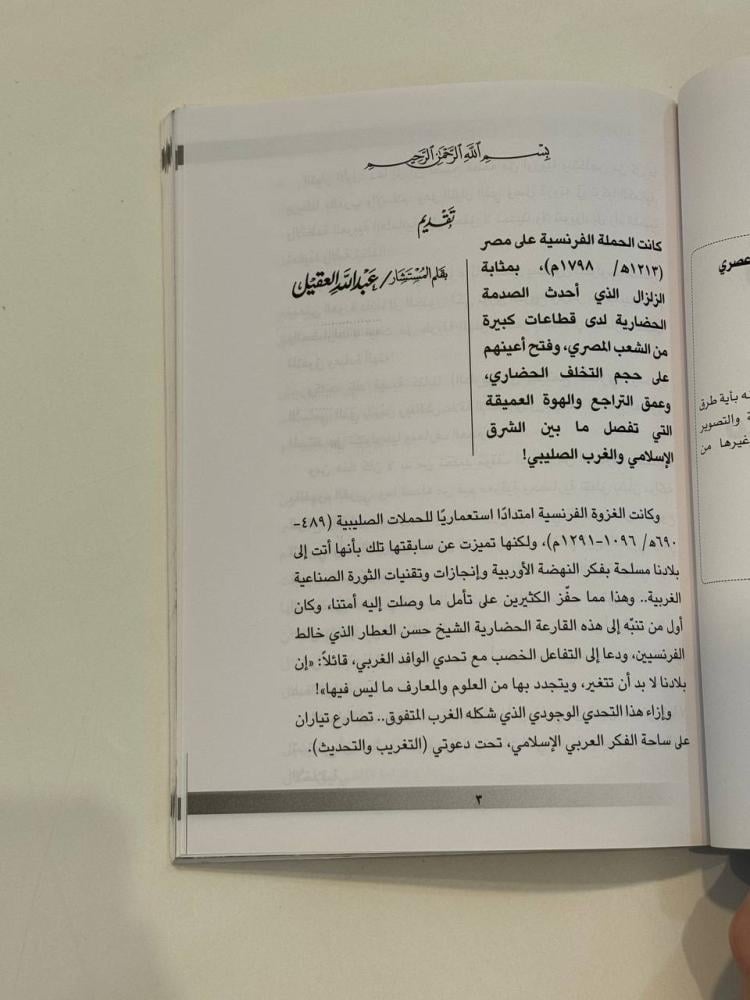 بسم الله الرحمن الرحيم
تقديم
بقلم المستشار/ عبد الله العقيل
كانت الحملة الفرنسية على مصر
(١٢١٣ه/ ١٧٩٨م)، بمثابة
الزلزال الذي أحدث الصدمة
الحضارية لدى قطاعات كبيرة
من الشعب المصري، وفتح أعينهم
على حجم التخلف الحضاري،
وعمق التراجع والهوة العميقة
التي تفصل ما بين الشرق
الإسلامي والغرب الصليبي!
وكانت الغزوة الفرنسية امتدادًا استعماريًا للحملات الصليبية (٤٨٩-
٦٩٠ه/ ١٠٩٦-١٢٩١م)، ولكنها تميزت عن سابقتها تلك بأنها أتت إلى
بلادنا مسلحة بفكر النهضة الأوربية وإنجازات وتقنيات الثورة الصناعية
الغربية.. وهذا مما حفّز الكثيرين على تأمل ما وصلت إليه أمتنا، وكان
أول من تنبّه إلى هذه القارعة الحضارية الشيخ حسن العطار الذي خالط
الفرنسيين، ودعا إلى التفاعل الخصب مع تحدي الوافد الغربي، قائلاً: «إن
بلادنا لا بد أن تتغير، ويتجدد بها من العلوم والمعارف ما ليس فيها»!
وإزاء هذا التحدي الوجودي الذي شكله الغرب المتفوق.. تصارع تياران
على ساحة الفكر العربي الإسلامي، تحت دعوتي (التغريب والتحديث).
٣
عصري
بأية طرق
والتصوير
غيرها من